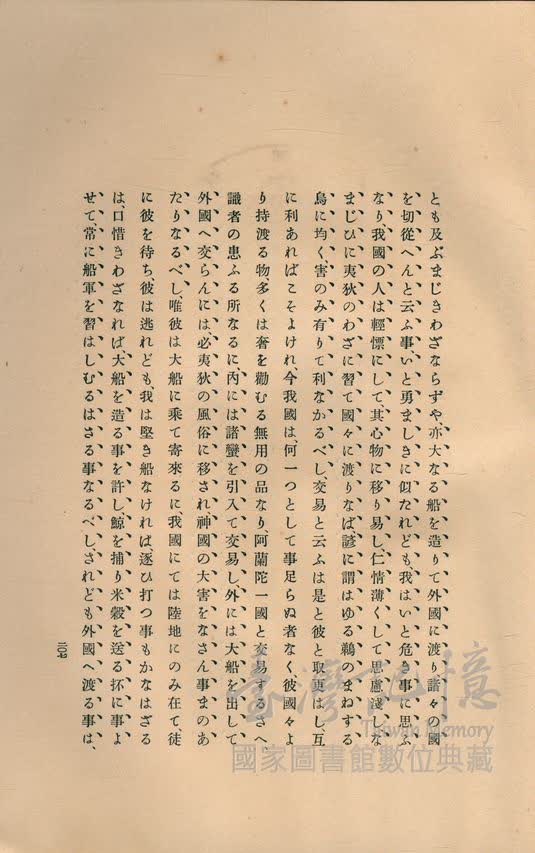 とも及ぶまじきわざならずや、亦大なる船を造りて外國に渡り諸々の國
を切從へんと云ふ事、いと勇ましきに似たれども、我はいと危き事に思ふ
なり、我國の人は輕慓にして其心物に移り易し、仁情薄くして思慮淺し、な
まじひに夷狄のわざに習て國々に渡りなば、諺に謂はゆる鵜のまねする
烏に均く、害のみ有りて利なかるべし、交易と云ふは是と彼と取更はし、互
に利あればこそよけれ、今我國は、何一つとして事足らぬ者なく、彼國々よ
り持渡る物、多くは奢を勸むる無用の品なり、阿蘭陀一國と交易するさへ、
識者の患ふる所なるに、内には諸蠻を引入て交易し、外には大船を出して
外國へ交らんには、必夷狄の風俗に移され、神國の大害をなさん事まのあ
たりなるべし、唯彼は大船に乘て寄來るに、我國にては陸地にのみ在て徒
に彼を待ち、彼は逃れども、我は堅き船なければ、逐ひ打つ事もかなはざる
は、口惜きわざなれば、大船を造る事を許し、鯨を捕り米穀を送る抔に事よ
せて常に船軍を習はしむるはさる事なるべし、されども外國へ渡る事は、
二〇七
臺灣記憶
Taiwan Memory
國家圖書館數位典藏